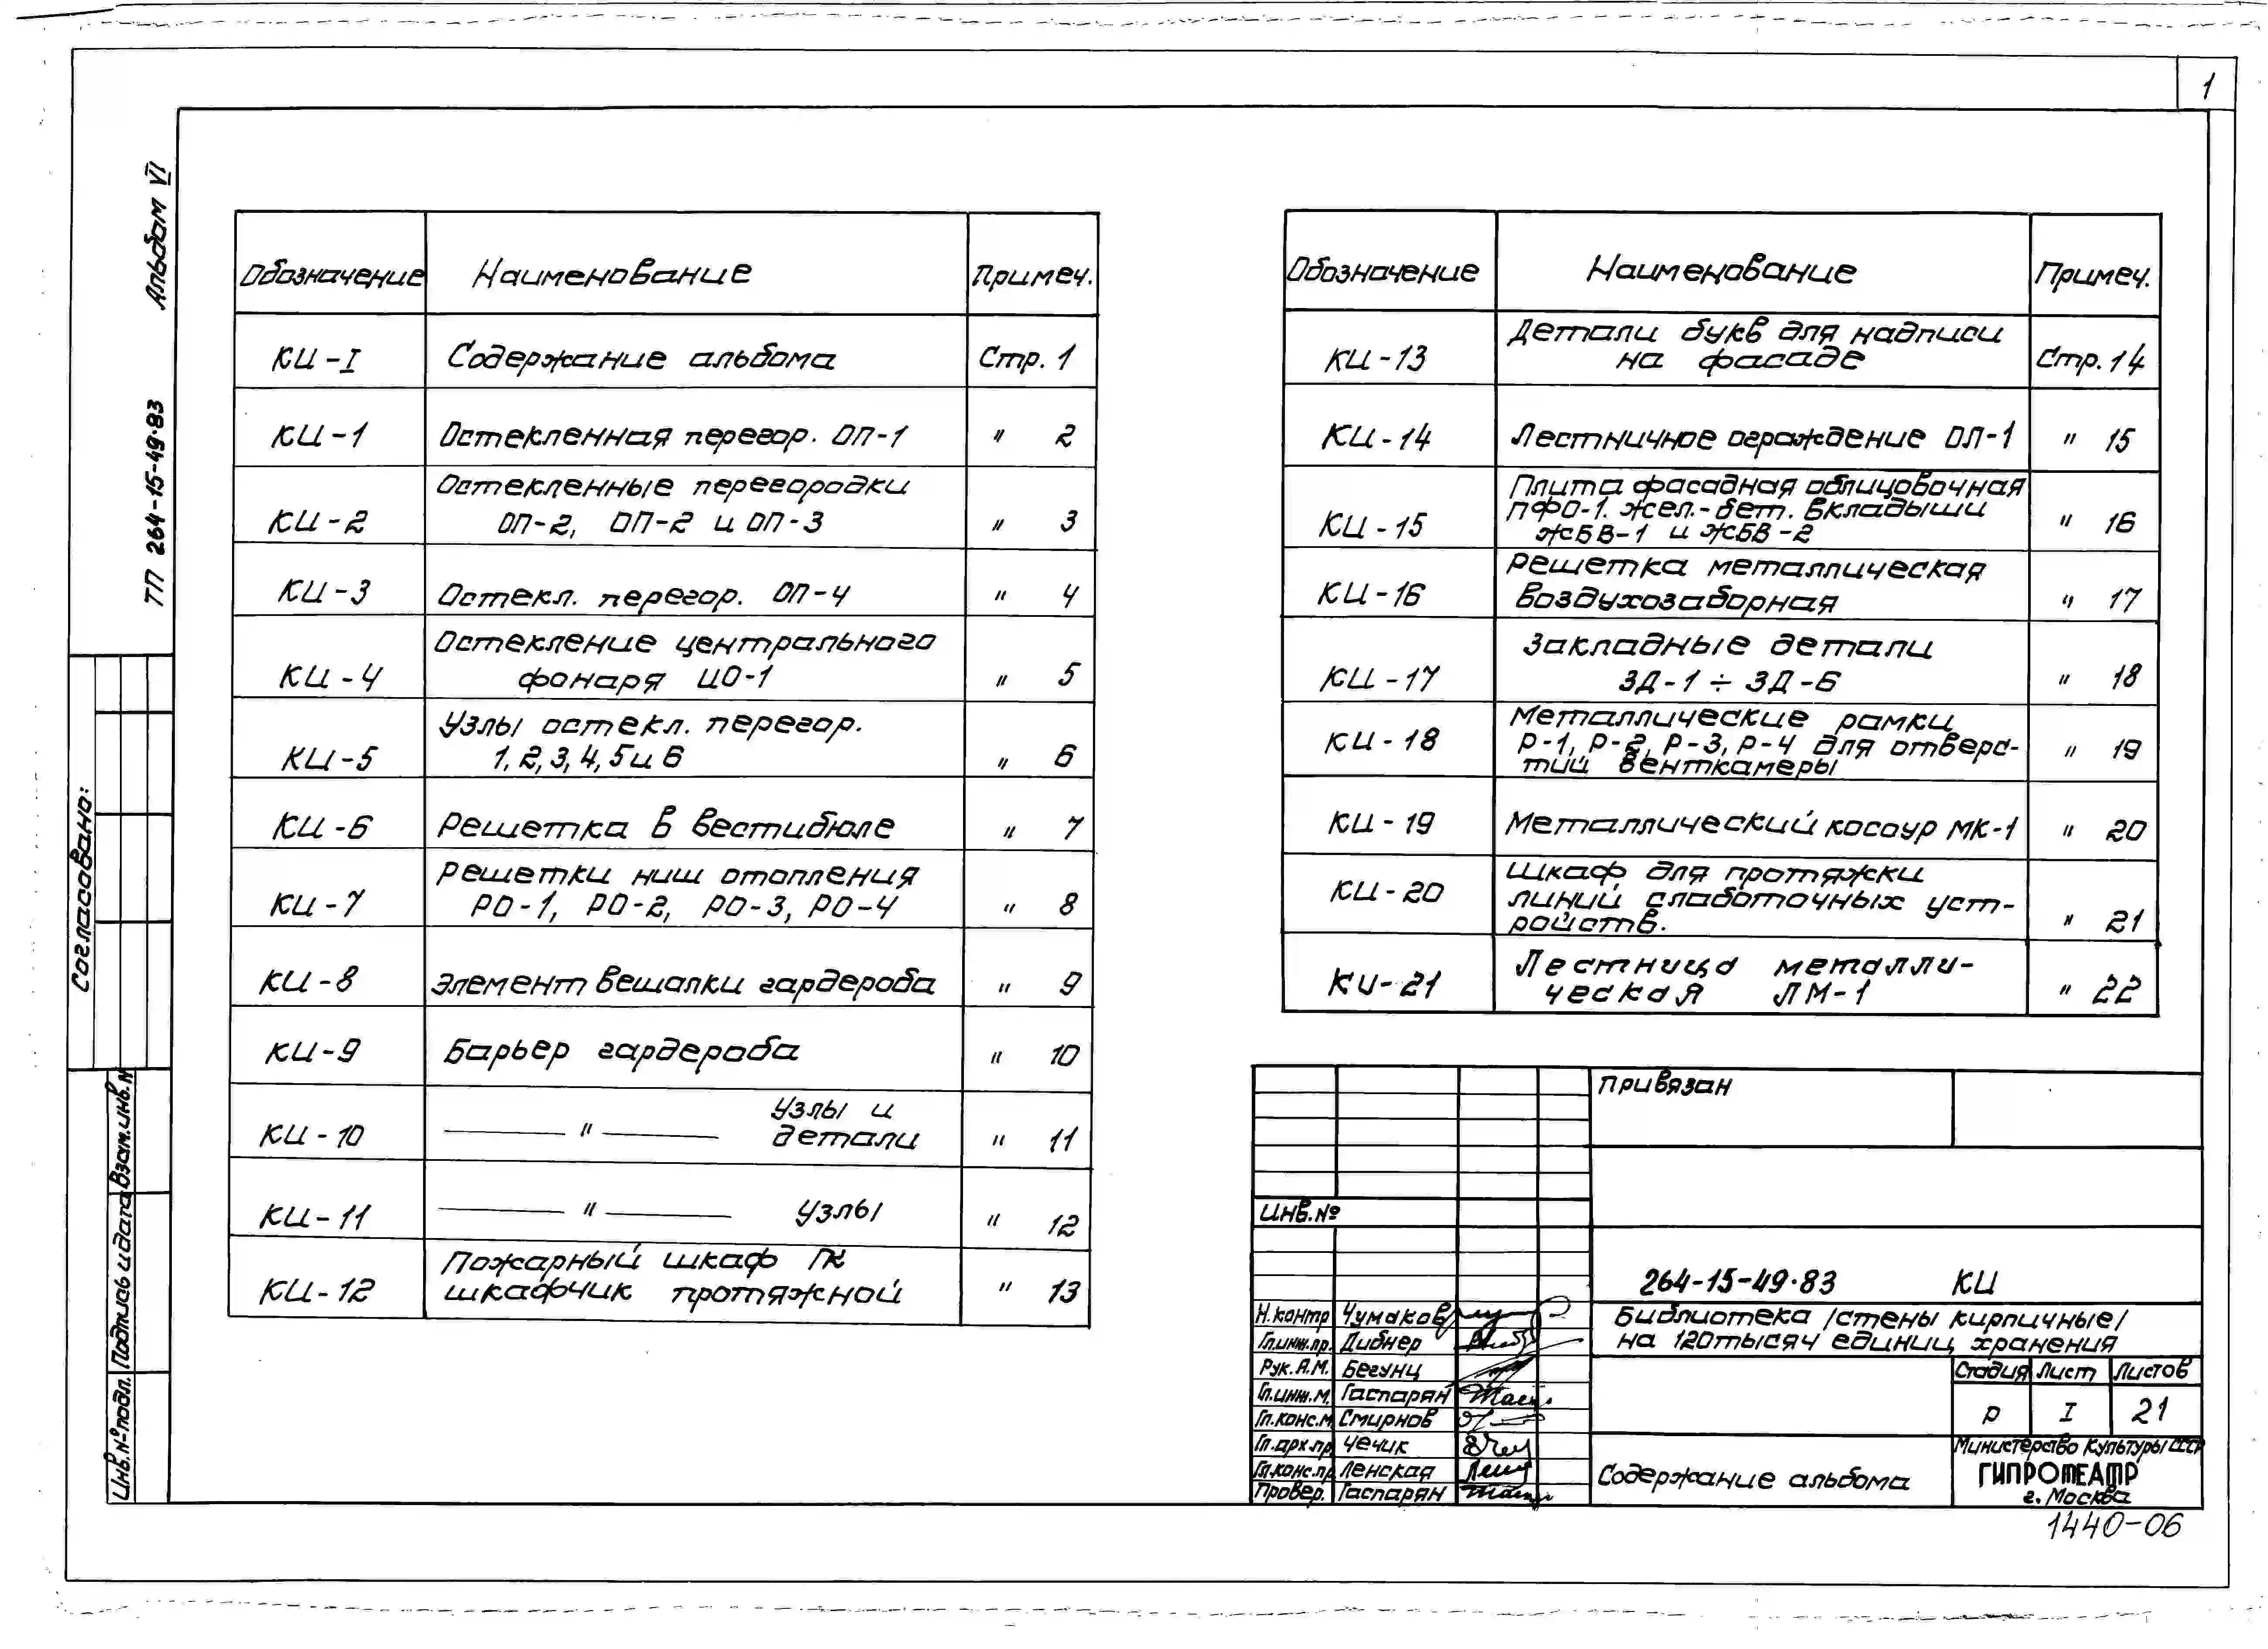 1
Альбом VI
ТП 264-15-49.83
Согласовано:
Взам.инв.№
Подпись и дата
Инв.№ подл.
Обозначение Наименование Примеч.
КИ-I Содержание альбома Стр. 1
КИ-1 Остекленная перегор. ОП-1 " 2
Остекленные перегородки
КИ-2 ОП-2, ОП-2 и ОП-3 " 3
КИ-3 Остекл. перегор. ОП-4 " 4
Остекление центрального
КИ-4 фонаря ЦО-1 " 5
Узлы остекл. перегор.
КИ-5 1, 2, 3, 4, 5 и 6 " 6
КИ-6 Решетка в вестибюле " 7
Решетки ниш отопления
КИ-7 РО-1, РО-2, РО-3, РО-4 " 8
КИ-8 Элемент вешалки гардероба " 9
КИ-9 Барьер гардероба " 10
Узлы и
КИ-10 — " — детали " 11
КИ-11 — " — Узлы " 12
Пожарный шкаф ПК
КИ-12 шкафчик протяжной " 13
Обозначение Наименование Примеч.
Детали букв для надписи
КИ-13 на фасаде Стр. 14
КИ-14 Лестничное ограждение ОЛ-1 " 15
Плита фасадная облицовочная
ПФО-1. Жел.-бет. вкладыши
КИ-15 ЖБВ-1 и ЖБВ-2 " 16
Решетка металлическая
КИ-16 воздухозаборная " 17
Закладные детали
КИ-17 ЗД-1 ÷ ЗД-6 " 18
Металлические рамки
КИ-18 Р-1, Р-2, Р-3, Р-4 для отверс- " 19
тий венткамеры
КИ-19 Металлический косоур МК-1 " 20
Шкаф для протяжки
КИ-20 линий слаботочных уст-
ройств. " 21
Лестница металли-
КИ-21 ческая ЛМ-1 " 22
Привязан
Инв.№
264-15-49.83 КИ
Н.контр Чумаков
Гл.инж.пр. Дибнер
Рук. А.М. Бегунц
Гл.инж.М. Гаспарян
Гл.конс.М Смирнов
Гл.арх.пр Чечик
Гл.конс.пр Ленская
Провер. Гаспарян
Библиотека /стены кирпичные/
на 120 тысяч единиц хранения
Стадия Лист Листов
Р I 21
Содержание альбома
Министерство Культуры СССР
ГИПРОТЕАТР
г. Москва
1440-06